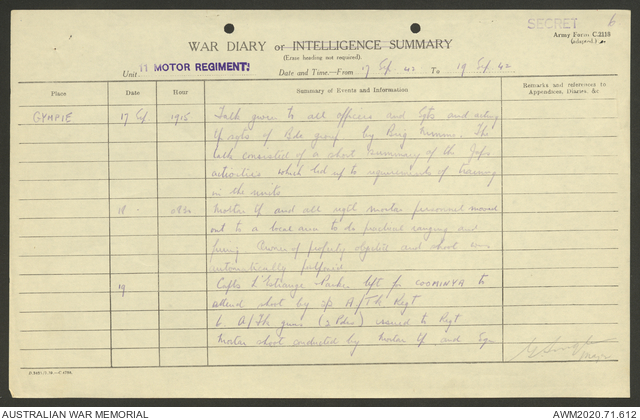 SECRET 6
Army Form C.2118
WAR DIARY or INTELLIGENCE SUMMARY
(Erase heading not required).
Unit 11 MOTOR REGIMENT.
Date and Time—From 17 Sep. 42 To 19 Sep. 42
Place Date Hour Summary of Events and Information Remarks and references to
Appendices, Diaries, &c
GYMPIE 17 Sep. 1915 Talk given to all officers and Sgts and acting
Sgts of Bde group by Brig The
talk consisted of a short summary of the Japs
activities which led up to requirements of training
in the units
18 Mortar and all mortar personnel moved
out to a local area to do practical ranging and
firing Owner of property and shoot was
automatically
19 Capts L'Estrange Parker left for COOMINYA to
attend shoot by A/Tk Regt
6 A/Tk guns (2 Pdrs) issued to Regt
Mortar shoot conducted by Mortar and
Major
AUSTRALIAN WAR MEMORIAL
AWM2020.71.612